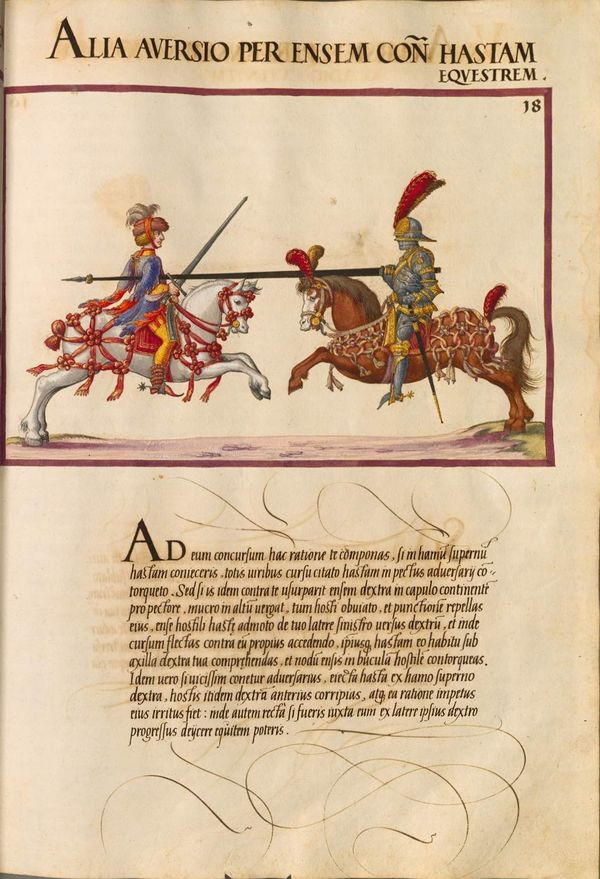 ALIA AVERSIO PER ENSEM COÑ HASTAM
EQVESTREM.
18
AD eum concursum hac ratione te cõponas, si in hamũ supernũ
hastam conieceris, totis uiribus cursu citato hastam in pectus aduersarij cõ-
torqueto. Sed si is idem contra te usurparit ensem dextra in capulo continente
pro pectore, mucro in altũ uergat, tum hosti obuiato, et punctionẽ repellas
eius, ense hostili hastę admoto de tuo latere sinistro uersus dextrũ, et inde
cursum flectas contra eũ propius accedendo, ipiusq; hastam eo habitu sub
axilla dextra tua comprehendas, et nodũ ensis in bucula hostili contorqueas.
Idem uero si uicissim conetur aduersarius, eiecta hasta ex hamo superno
dextra, hostis itidem dextrã anterius corripias, atq; ea ratione impetus
eius irritus fiet: inde autem recta si fueris iuxta eum ex latere ipsius dextro
progressus deijcere equitem poteris.